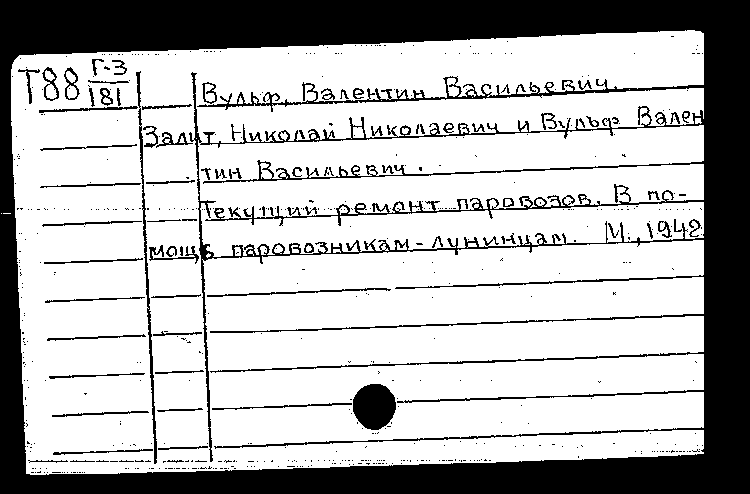 Т88 Г-3
181
Вульф, Валентин Васильевич.
Залит, Николай Николаевич и Вульф Вален
тин Васильевич.
Текущий ремонт паровозов. В по-
мощь паровозникам-лунинцам. М., 1942